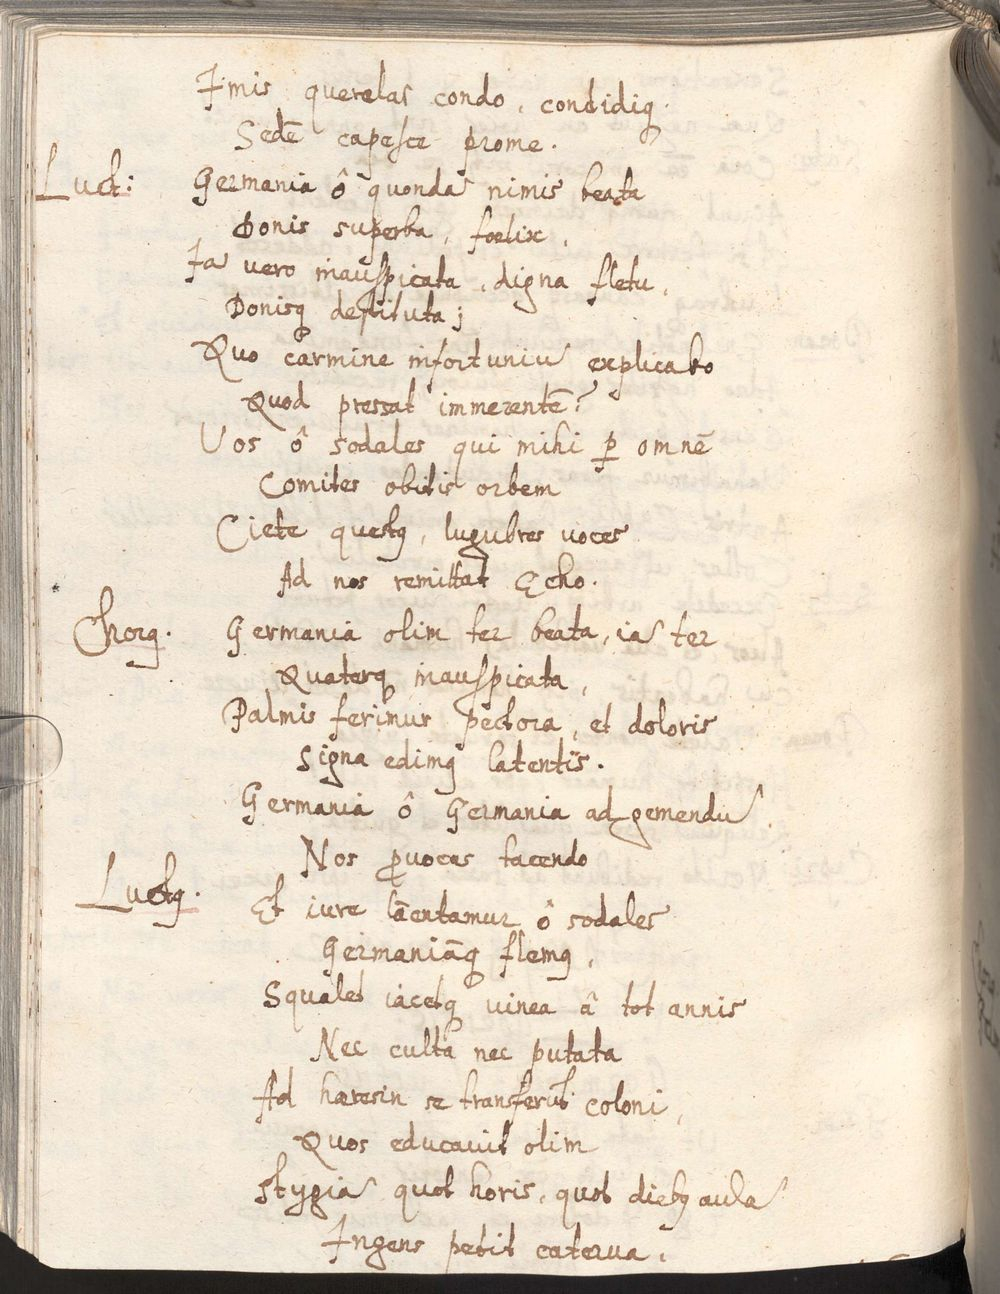 Imis querelas condo, condidiq.
Sedē capesce prome.
Luct: Germania ô quondā nimis beata
Donis superba, foelix,
Iā vero inauspicata, digna fletu,
Donisq destituta;
Quo carmine infortuniū explicabo
Quod pressat immerentē?
Vos ô sodales qui mihi ꝑ omnē
Comites obitis orbem
Ciete questꝰ, lugubres uoces
Ad nos remittat Echo.
Chorꝰ. Germania olim ter beata, iā ter
Quaterq inauspicata,
Palmis ferimur pectora, et doloris
Signa edimꝰ latentis.
Germania ô Germania ad gemendū
Nos ꝓuocas tacendo
Luctꝰ. Et iure lāentamur ô sodales
Germaniāq flemꝰ,
Squalet iacetq uinea â tot annis
Nec culta nec putata
Ad haeresin se transferūt coloni,
Quos educauit olim
Stygiā quot horis, quot diebꝰ aulā
Ingens petit caterua,